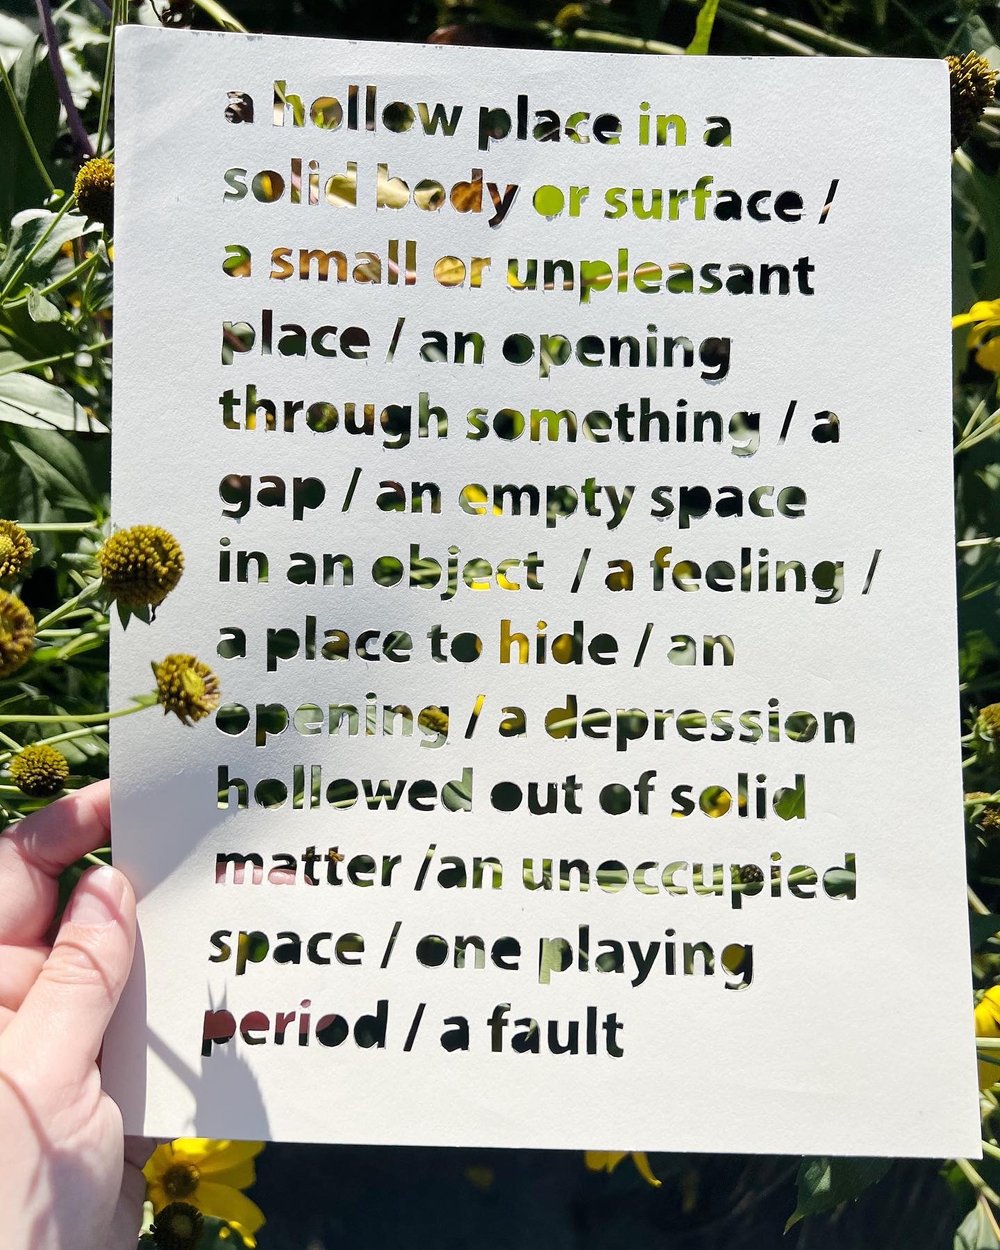 a hollow place in a
solid body or surface /
a small or unpleasant
place / an opening
through something / a
gap / an empty space
in an object / a feeling /
a place to hide / an
opening / a depression
hollowed out of solid
matter /an unoccupied
space / one playing
period / a fault